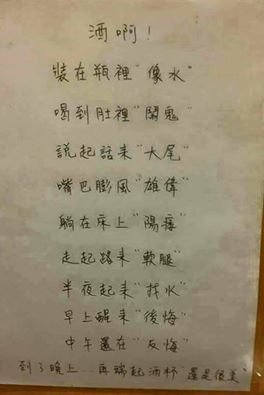 酒啊!
裝在瓶裡"像水"
喝到肚裡"鬧鬼"
說起話來"大尾"
嘴巴膨風"雄偉"
躺在床上"陽痿"
走起路來"軟腿"
半夜起來"找水"
早上醒來"後悔"
中午還在"反悔"
到了晚上...再端起酒杯"還是很美"